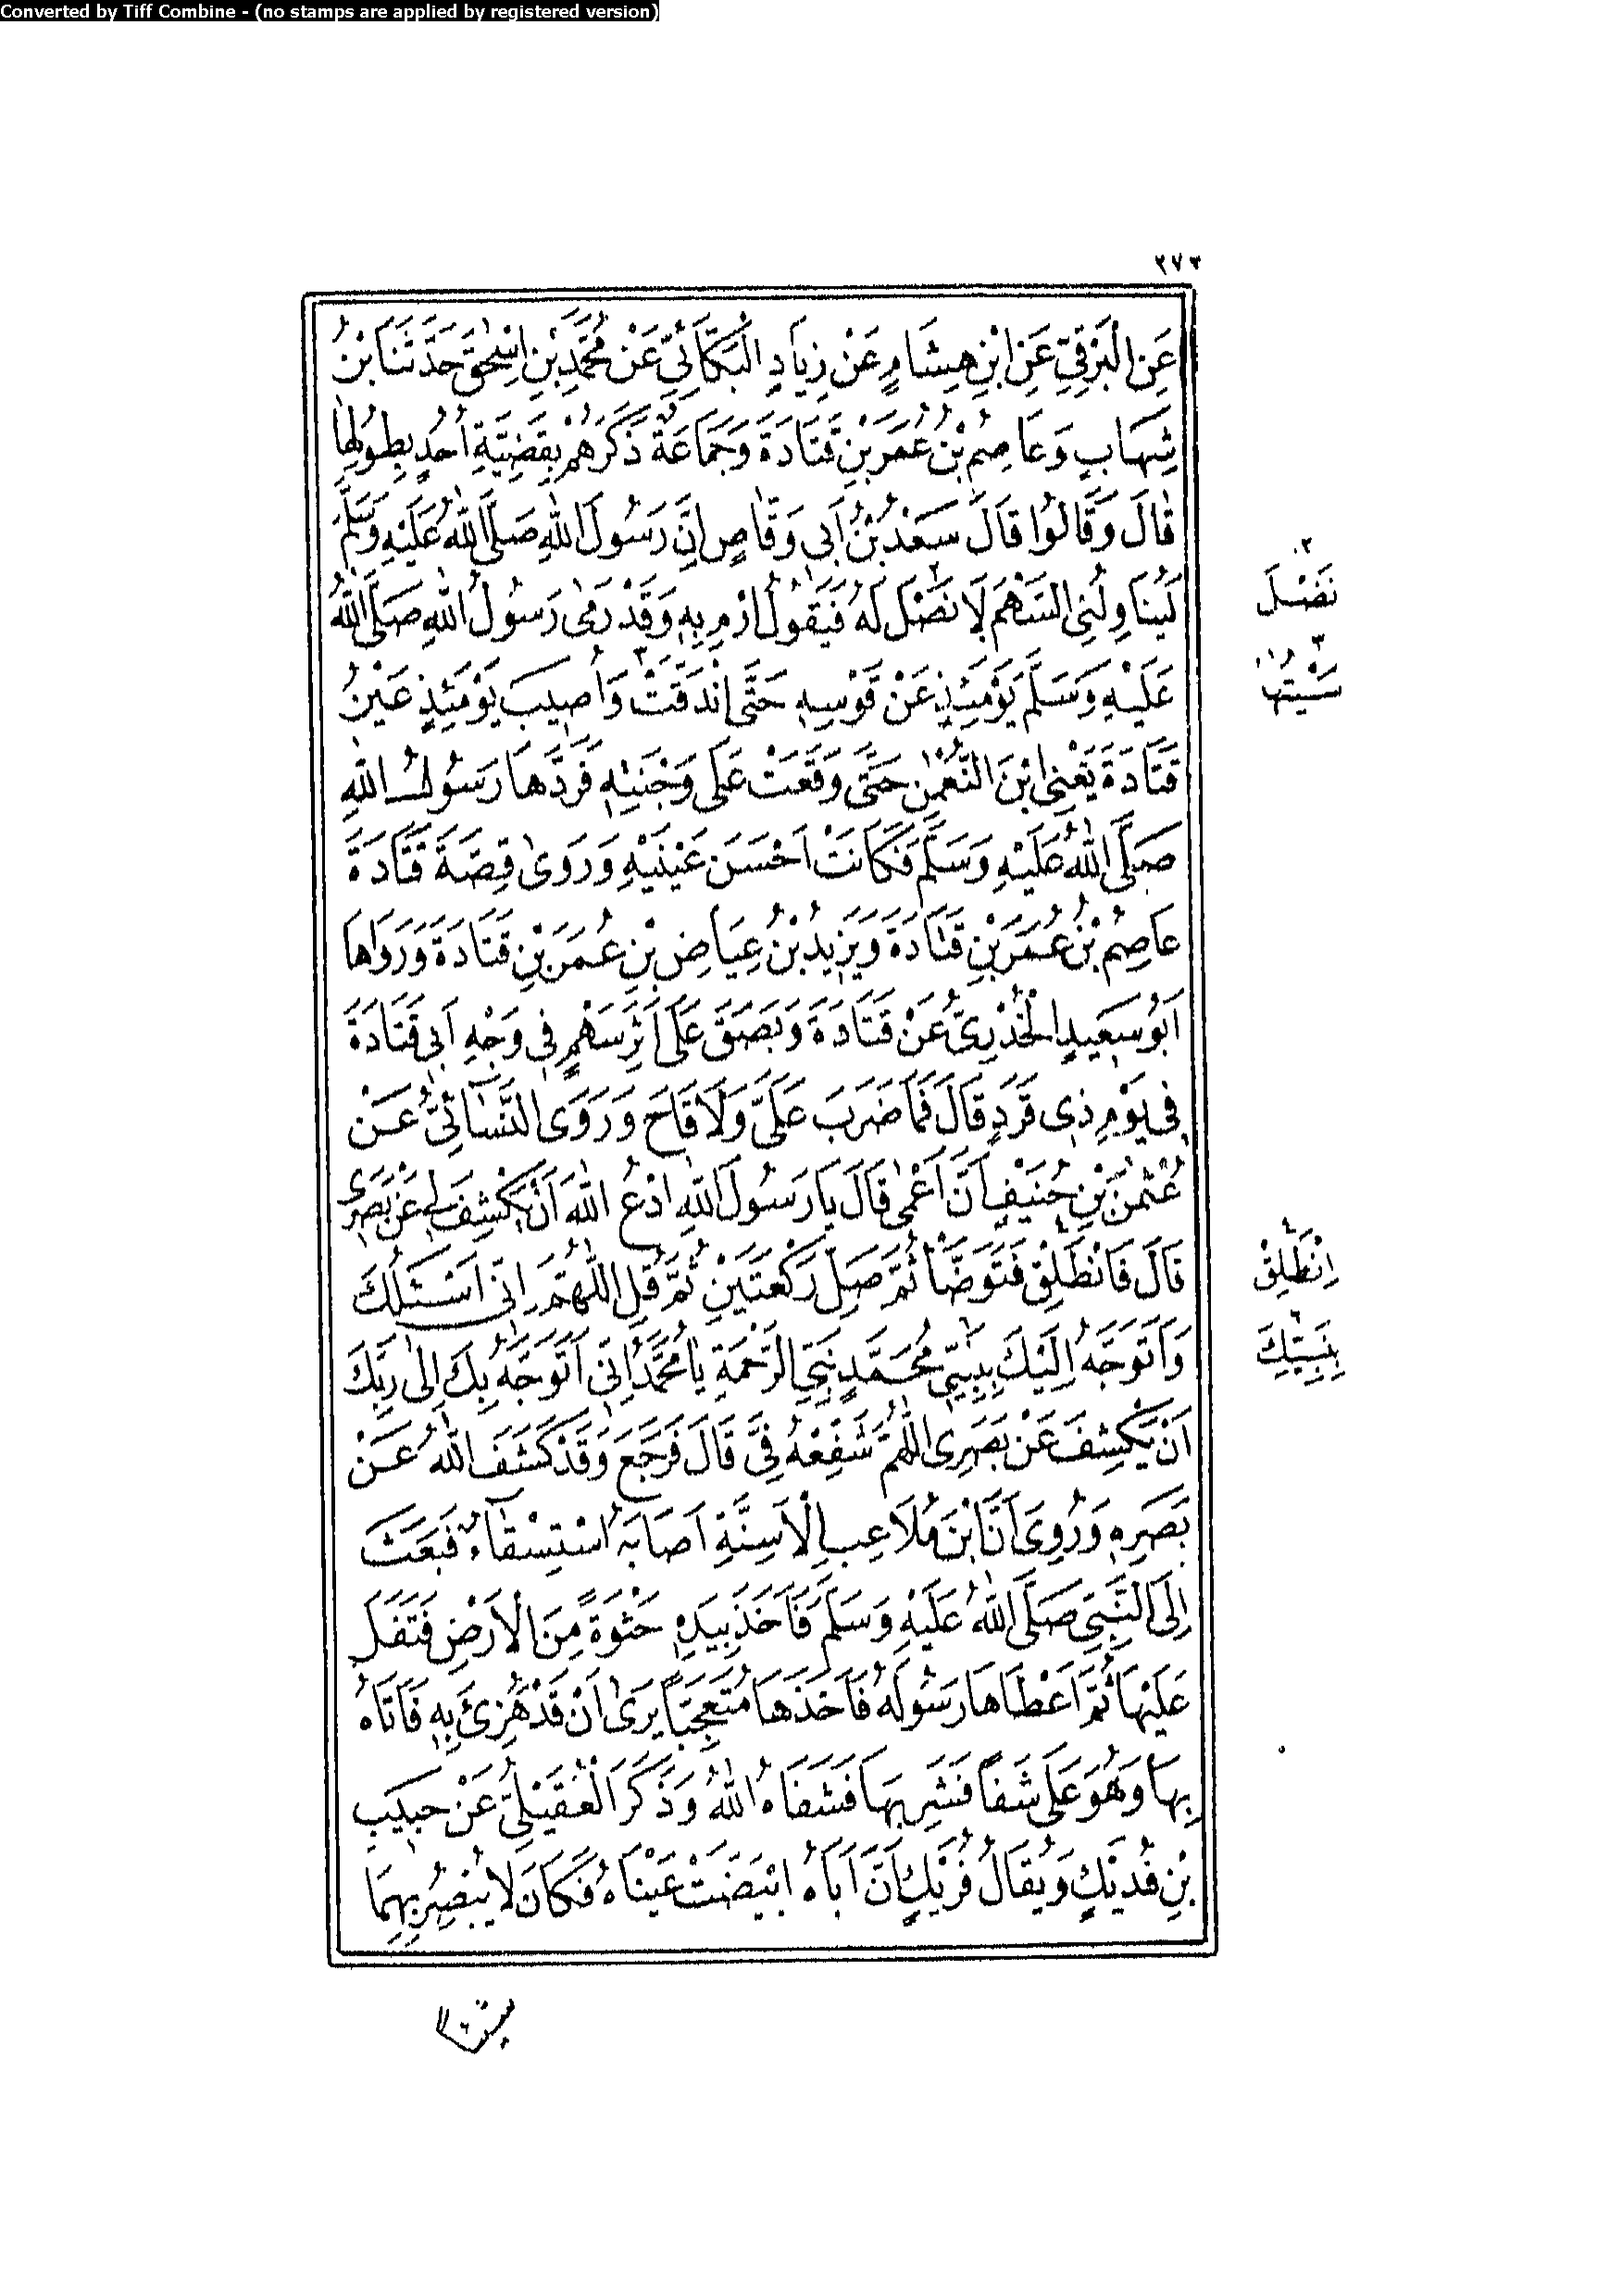 Converted by Tiff Combine - (no stamps are applied by registered version)
٢٧٢
عَنِ الْبَرْقِيِّ عَنِ ابْنِ هِشَامٍ عَنْ زِيَادٍ الْبَكَّائِيِّ عَنْ مُحَمَّدِ بْنِ اِسْحٰقَ حَدَّثَنَا ابْنُ
شِهَابٍ وَعَاصِمُ بْنُ عُمَرَ بْنِ قَتَادَةَ وَجَمَاعَةٌ ذَكَرَهُمْ بِقَضِيَّةِ اُحُدٍ بِطُولِهَا
قَالَ وَقَالُوا قَالَ سَعْدُ بْنُ اَبِي وَقَّاصٍ اِنَّ رَسُولَ اللّٰهِ صَلَّى اللّٰهُ عَلَيْهِ وَسَلَّمَ
لَيُنَاوِلُنِى السَّهْمَ لَا نَصْلَ لَهُ فَيَقُولُ ارْمِ بِهِ وَقَدْ رَمٰى رَسُولُ اللّٰهِ صَلَّى اللّٰهُ
عَلَيْهِ وَسَلَّمَ يَوْمَئِذٍ عَنْ قَوْسِهِ حَتَّى انْدَقَّتْ وَاُصِيبَ يَوْمَئِذٍ عَيْنُ
قَتَادَةَ يَعْنِى ابْنَ النُّعْمٰنِ حَتَّى وَقَعَتْ عَلٰى وَجْنَتِهِ فَرَدَّهَا رَسُولُ اللّٰهِ
صَلَّى اللّٰهُ عَلَيْهِ وَسَلَّمَ فَكَانَتْ اَحْسَنَ عَيْنَيْهِ وَرَوٰى قِصَّةَ قَتَادَةَ
عَاصِمُ بْنُ عُمَرَ بْنِ قَتَادَةَ وَيَزِيدُ بْنُ عِيَاضِ بْنِ عُمَرَ بْنِ قَتَادَةَ وَرَوَاهَا
اَبُو سَعِيدٍ الْخُدْرِىُّ عَنْ قَتَادَةَ وَبَصَقَ عَلٰى اَثَرِ سَهْمٍ فِى وَجْهِ اَبِى قَتَادَةَ
فِى يَوْمِ ذِى قَرَدٍ قَالَ فَمَا ضَرَبَ عَلَىَّ وَلَا قَاحَ وَرَوَى النَّسَائِىُّ عَنْ
عُثْمٰنَ بْنِ حُنَيْفٍ اَنَّ اَعْمٰى قَالَ يَا رَسُولَ اللّٰهِ ادْعُ اللّٰهَ اَنْ يَكْشِفَ لِى عَنْ بَصَرِى
قَالَ فَانْطَلِقْ فَتَوَضَّأْ ثُمَّ صَلِّ رَكْعَتَيْنِ ثُمَّ قُلِ اللّٰهُمَّ اِنِّى اَسْئَلُكَ
وَاَتَوَجَّهُ اِلَيْكَ بِنَبِيِّى مُحَمَّدٍ نَبِىِّ الرَّحْمَةِ يَا مُحَمَّدُ اِنِّى اَتَوَجَّهُ بِكَ اِلٰى رَبِّكَ
اَنْ يَكْشِفَ عَنْ بَصَرِى اللّٰهُمَّ شَفِّعْهُ فِىَّ قَالَ فَرَجَعَ وَقَدْ كَشَفَ اللّٰهُ عَنْ
بَصَرِهِ وَرُوِىَ اَنَّ ابْنَ مُلَاعِبِ الْاَسِنَّةِ اَصَابَهُ اسْتِسْقَاءٌ فَبَعَثَ
اِلَى النَّبِىِّ صَلَّى اللّٰهُ عَلَيْهِ وَسَلَّمَ فَاَخَذَ بِيَدِهِ حَثْوَةً مِنَ الْاَرْضِ فَتَفَلَ
عَلَيْهَا ثُمَّ اَعْطَاهَا رَسُولَهُ فَاَخَذَهَا مُتَعَجِّبًا يَرٰى اَنْ قَدْ هُزِئَ بِهِ فَاَتَاهُ
بِهَا وَهُوَ عَلٰى شَفًا فَشَرِبَهَا فَشَفَاهُ اللّٰهُ وَذَكَرَ الْعُقَيْلِىُّ عَنْ حَبِيبِ
بْنِ فُدَيْكٍ وَيُقَالُ فُرَيْكٍ اَنَّ اَبَاهُ ابْيَضَّتْ عَيْنَاهُ فَكَانَ لَا يُبْصِرُ بِهِمَا
٢
نَصْلَ
٣
سِيَتُهَا
٤
اِنْطَلِقْ
٦
بِنَبِيِّكَ